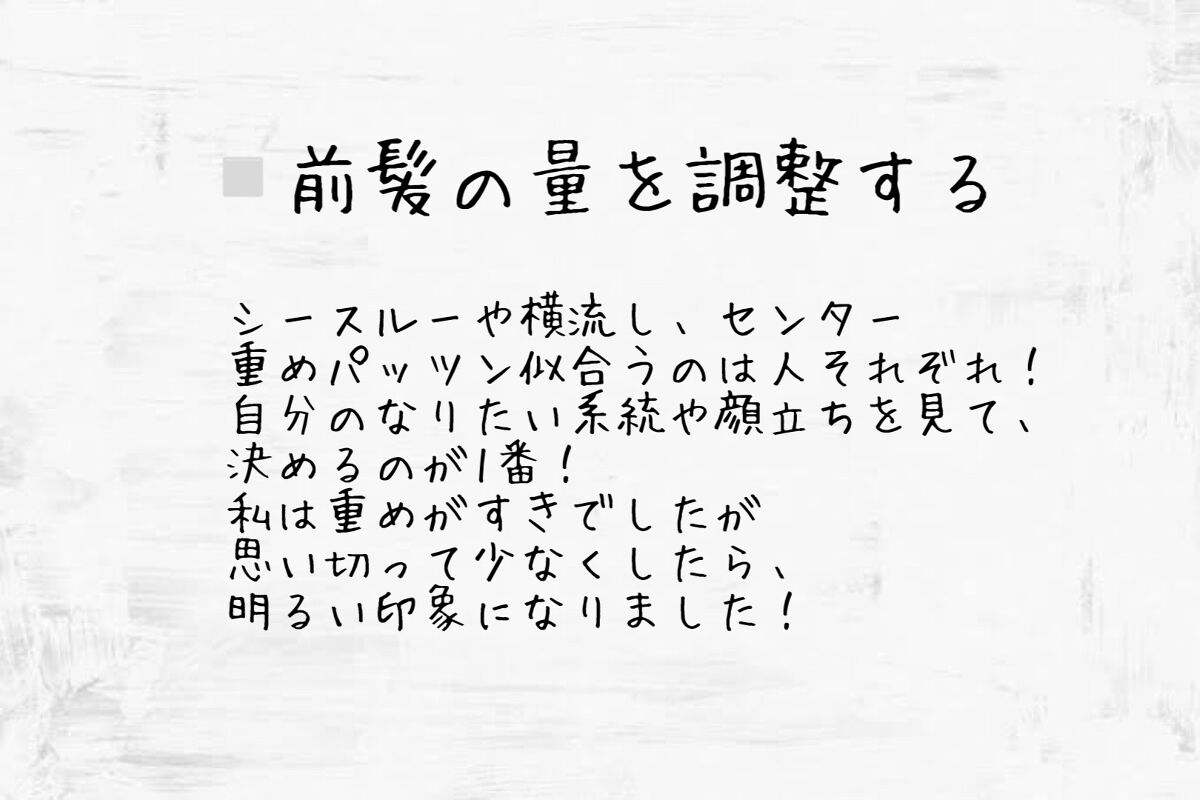 前髪の量を調整する
シースルーや横流し、センター
重めパッツン似合うのは人それぞれ！
自分のなりたい系統や顔立ちを見て、
決めるのが1番！
私は重めがすきでしたが
思い切って少なくしたら、
明るい印象になりました！